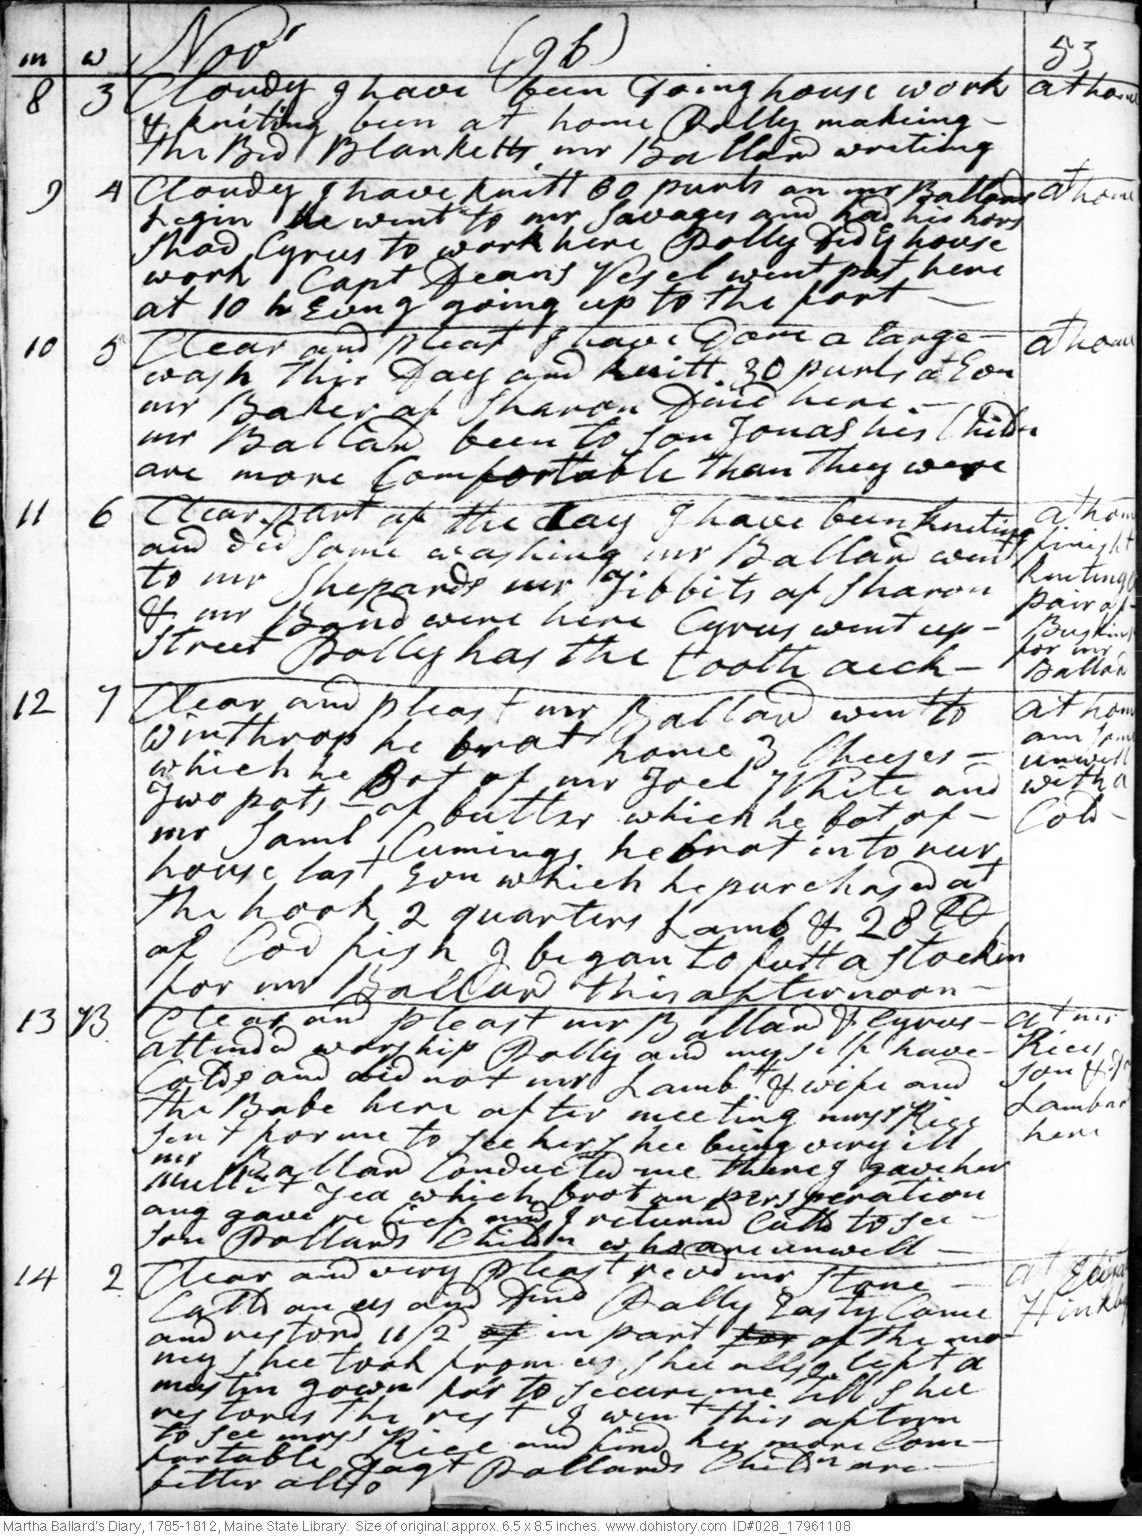 m w Novr (96) 53
8 3 Cloudy I have been Doing house work at home
& kniting been at home Dolly makeing
the Bed Blanketts mr Ballard writeing
9 4 Cloudy I have knitt 60 purls on mr Ballards at home
he went to mr Savages and had his hors
Shod Cyrus to work here Dolly did ye house
work Capt Deans Vesel went past here
at 10 h Evng going up to the fort
10 5 Clear and pleast I have Done a large at home
wash this Day and knitt 30 purls at Evn
mr Baker of Sharon Dined here
mr Ballard been to son Jonas his Childn
are more Comfortable than they were
11 6 Clear part of the day I have been kniting at home
and did some washing mr Ballard went finisht
to mr Shepards mr Tibbits of Sharon kniting a
& mr Bond were here Cyrus went up pair of
Street Dolly has the tooth aech Buskins
for mr
Ballard
12 7 Clear and pleast mr Ballard went to at home
Winthrop he brot home 3 Cheeses am some
which he Bot of mr Joel White and unwell
Two pots of butter which he bot of with a
mr Saml Cumings he brot into our Cold
house last Evn which he purchased at
the hook 2 quarters Lamb & 28 lb
of Cod fish I began to futt a stockin
for mr Ballard this afternoon
13 B Clear and pleast mr Ballard & Cyrus at mr
attended worship Dolly and my self have Rices
Colds and did not mr Lambt & wife and son &
the Babe here after meeting mrss Rice Lambard
sent for me to see her shee being very ill here
mr Ballard Conducted me there I gave her
Tea which brot on perspiration
ang gave relief and I returnd Calld to see
son Pollards Childn who are unwell
14 2 Clear and very pleast revd mr Stone at
Calld on us and dind Polly Easty Came Hinkly
and restord 11/2 of in part for of the mo
ney shee took from us shee allso left a
muslin gown for to secure me till shee
restores the rest I went this aftern
to see mrss Rice and find her more Com
fortable Pollards Childn are
better allso
Martha Ballard's Diary, 1785-1812, Maine State Library. Size of original: approx. 6.5 x 8.5 inches. www.dohistory.com ID#028_17961108